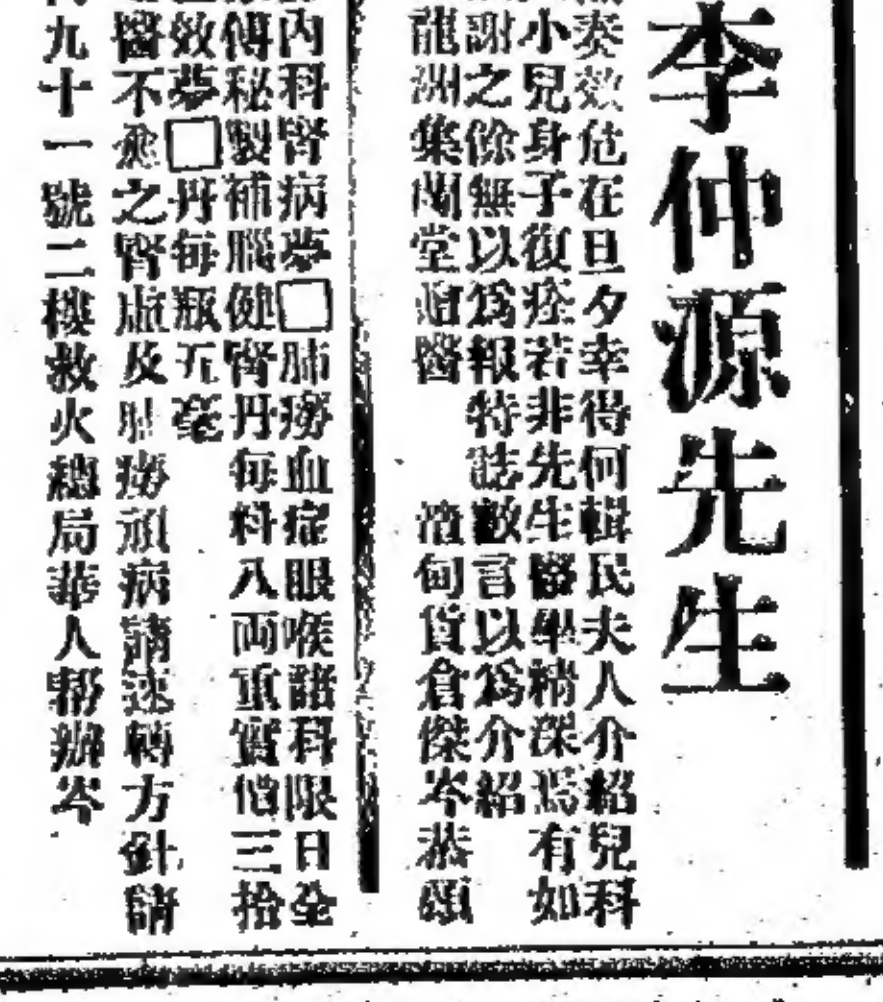 李仲源先生
奏效危在旦夕幸得何輯民夫人介紹兒科
小兒身子復痊若非先生醫學精深焉有如
謝之餘無以為報特誌數言以為介紹
龍洲集蘭堂贈醫 渣甸貨倉傑岑恭頌
內科腎病夢□肺癆血症眼喉諸科限日全
傳秘製補腦健腎丹每料八両重實價三拾
效夢□丹每瓶五毫
醫不愈之腎虛及肺癆頑病請速轉方針請
九十一號二樓救火總局華人幫辦岑